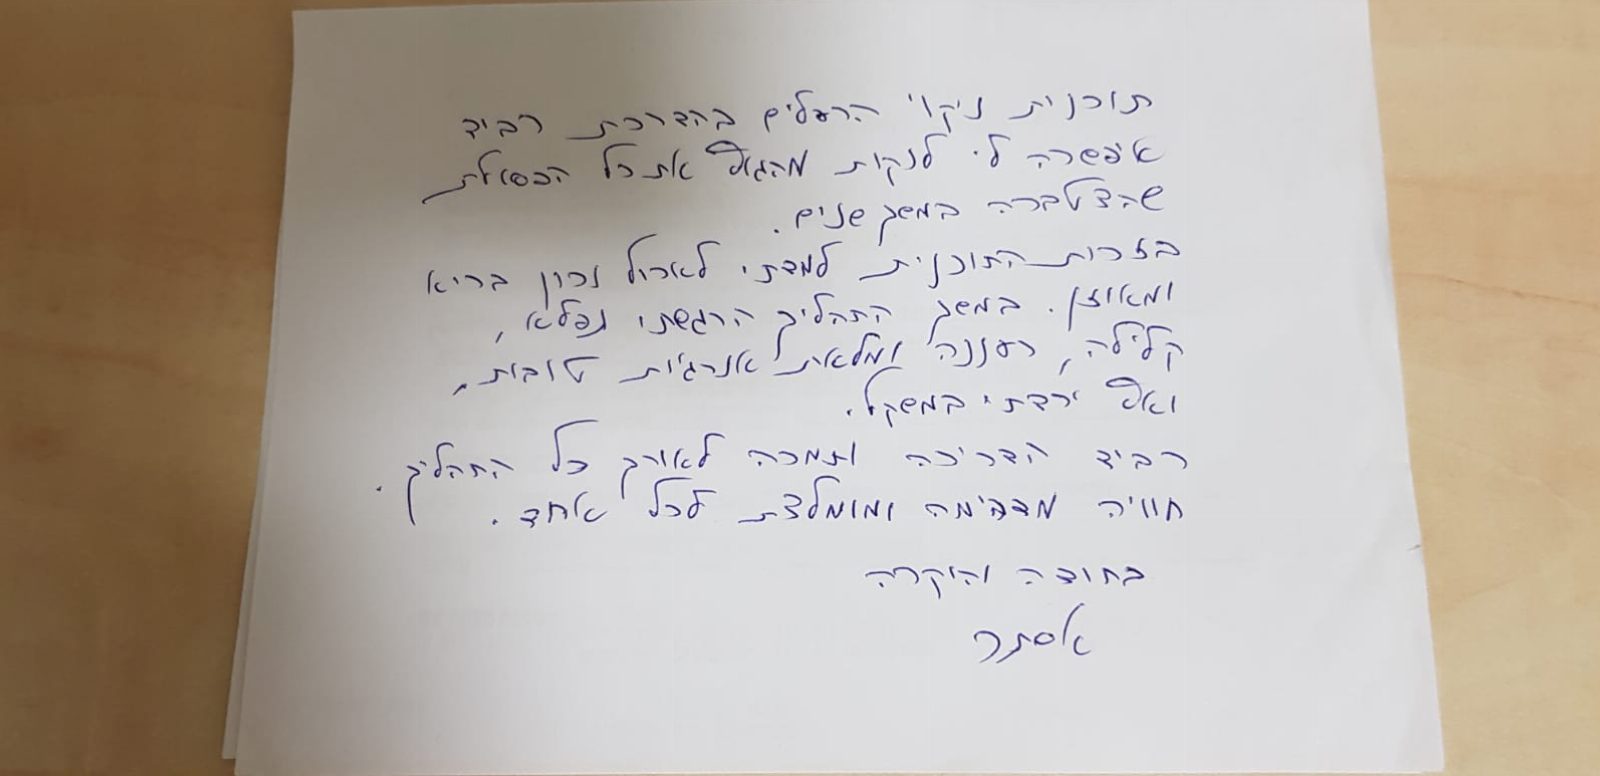 תוכנית ניקוי הרעלים בהדרכת רביד
איפשרה לי לנקות מהגוף את כל הפסולת
שהצטברה במשך שנים.
בזכות התוכנית למדתי לאכול נכון בריא
ומאוזן. במשך התהליך הרגשתי נפלא,
קלילה, רעננה ומלאת אנרגיות טובות,
ואף ירדתי במשקל.
רביד הדריכה ותמכה לאורך כל התהליך.
חוויה מדהימה ומומלצת לכל אחד.
בתודה והוקרה
אסתר